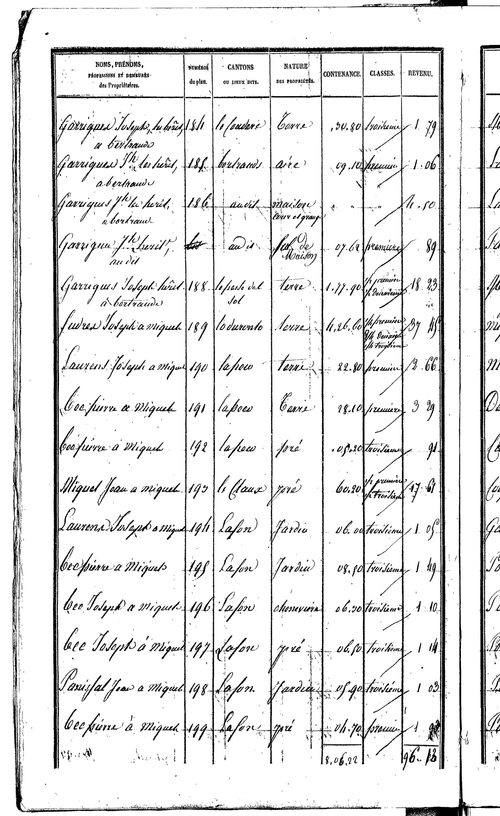 NOMS, PRÉNOMS, PROFESSIONS ET DEMEURES des Propriétaires. NUMÉROS du plan. CANTONS OU LIEUX DITS. NATURE DES PROPRIÉTÉS. CONTENANCE. CLASSES. REVENU.
Garrigues Joseph, les hérit. 184 le Couderc Terre .30.80 troisième 1 79
a bertrands
Garrigues Jph les hérit. 185 bertrands aire 09.10 première 1 06
a bertrands
Garrigues Jph les hérit. 186 au dit maison " " 4.50
a bertrand cour et grange
Garrigues Jph hérit. au dit sol de 07.62 première 89
au dit Maison
Garrigues Joseph hérit. 188 le pech del terre 1.77.90 première 18 23
à bertrands sol
Joseph a miquel 189 terre 4.26.60 première 37 45
troisième
Laurens Joseph a miquel 190 lapeco terre 22.80 première 2 66
Cec pierre a Miquel 191 lapeco Terre 28.10 première 3 29
Cec pierre à Miquel 192 lapeco pré .05.20 troisième 91
Miquel Jean a miquel 193 le Claux pré 60.20 première 17 61
troisième
Laurens Joseph a miquel 194 Lafon Jardin 06.00 troisième 1 05
Cec pierre a Miquel 195 Lafon Jardin 08.50 troisième 1 49
Cec Joseph a Miquel 196 Lafon chenevière 06.30 troisième 1 10
Cec Joseph à Miquel 197 Lafon pré 06.50 troisième 1 14
Panissal Jean a Miquel 198 Lafon Jardin 05.90 troisième 1 03
Cec pierre à Miquel 199 Lafon pré 04.70 première 1
8.06.22 96.18